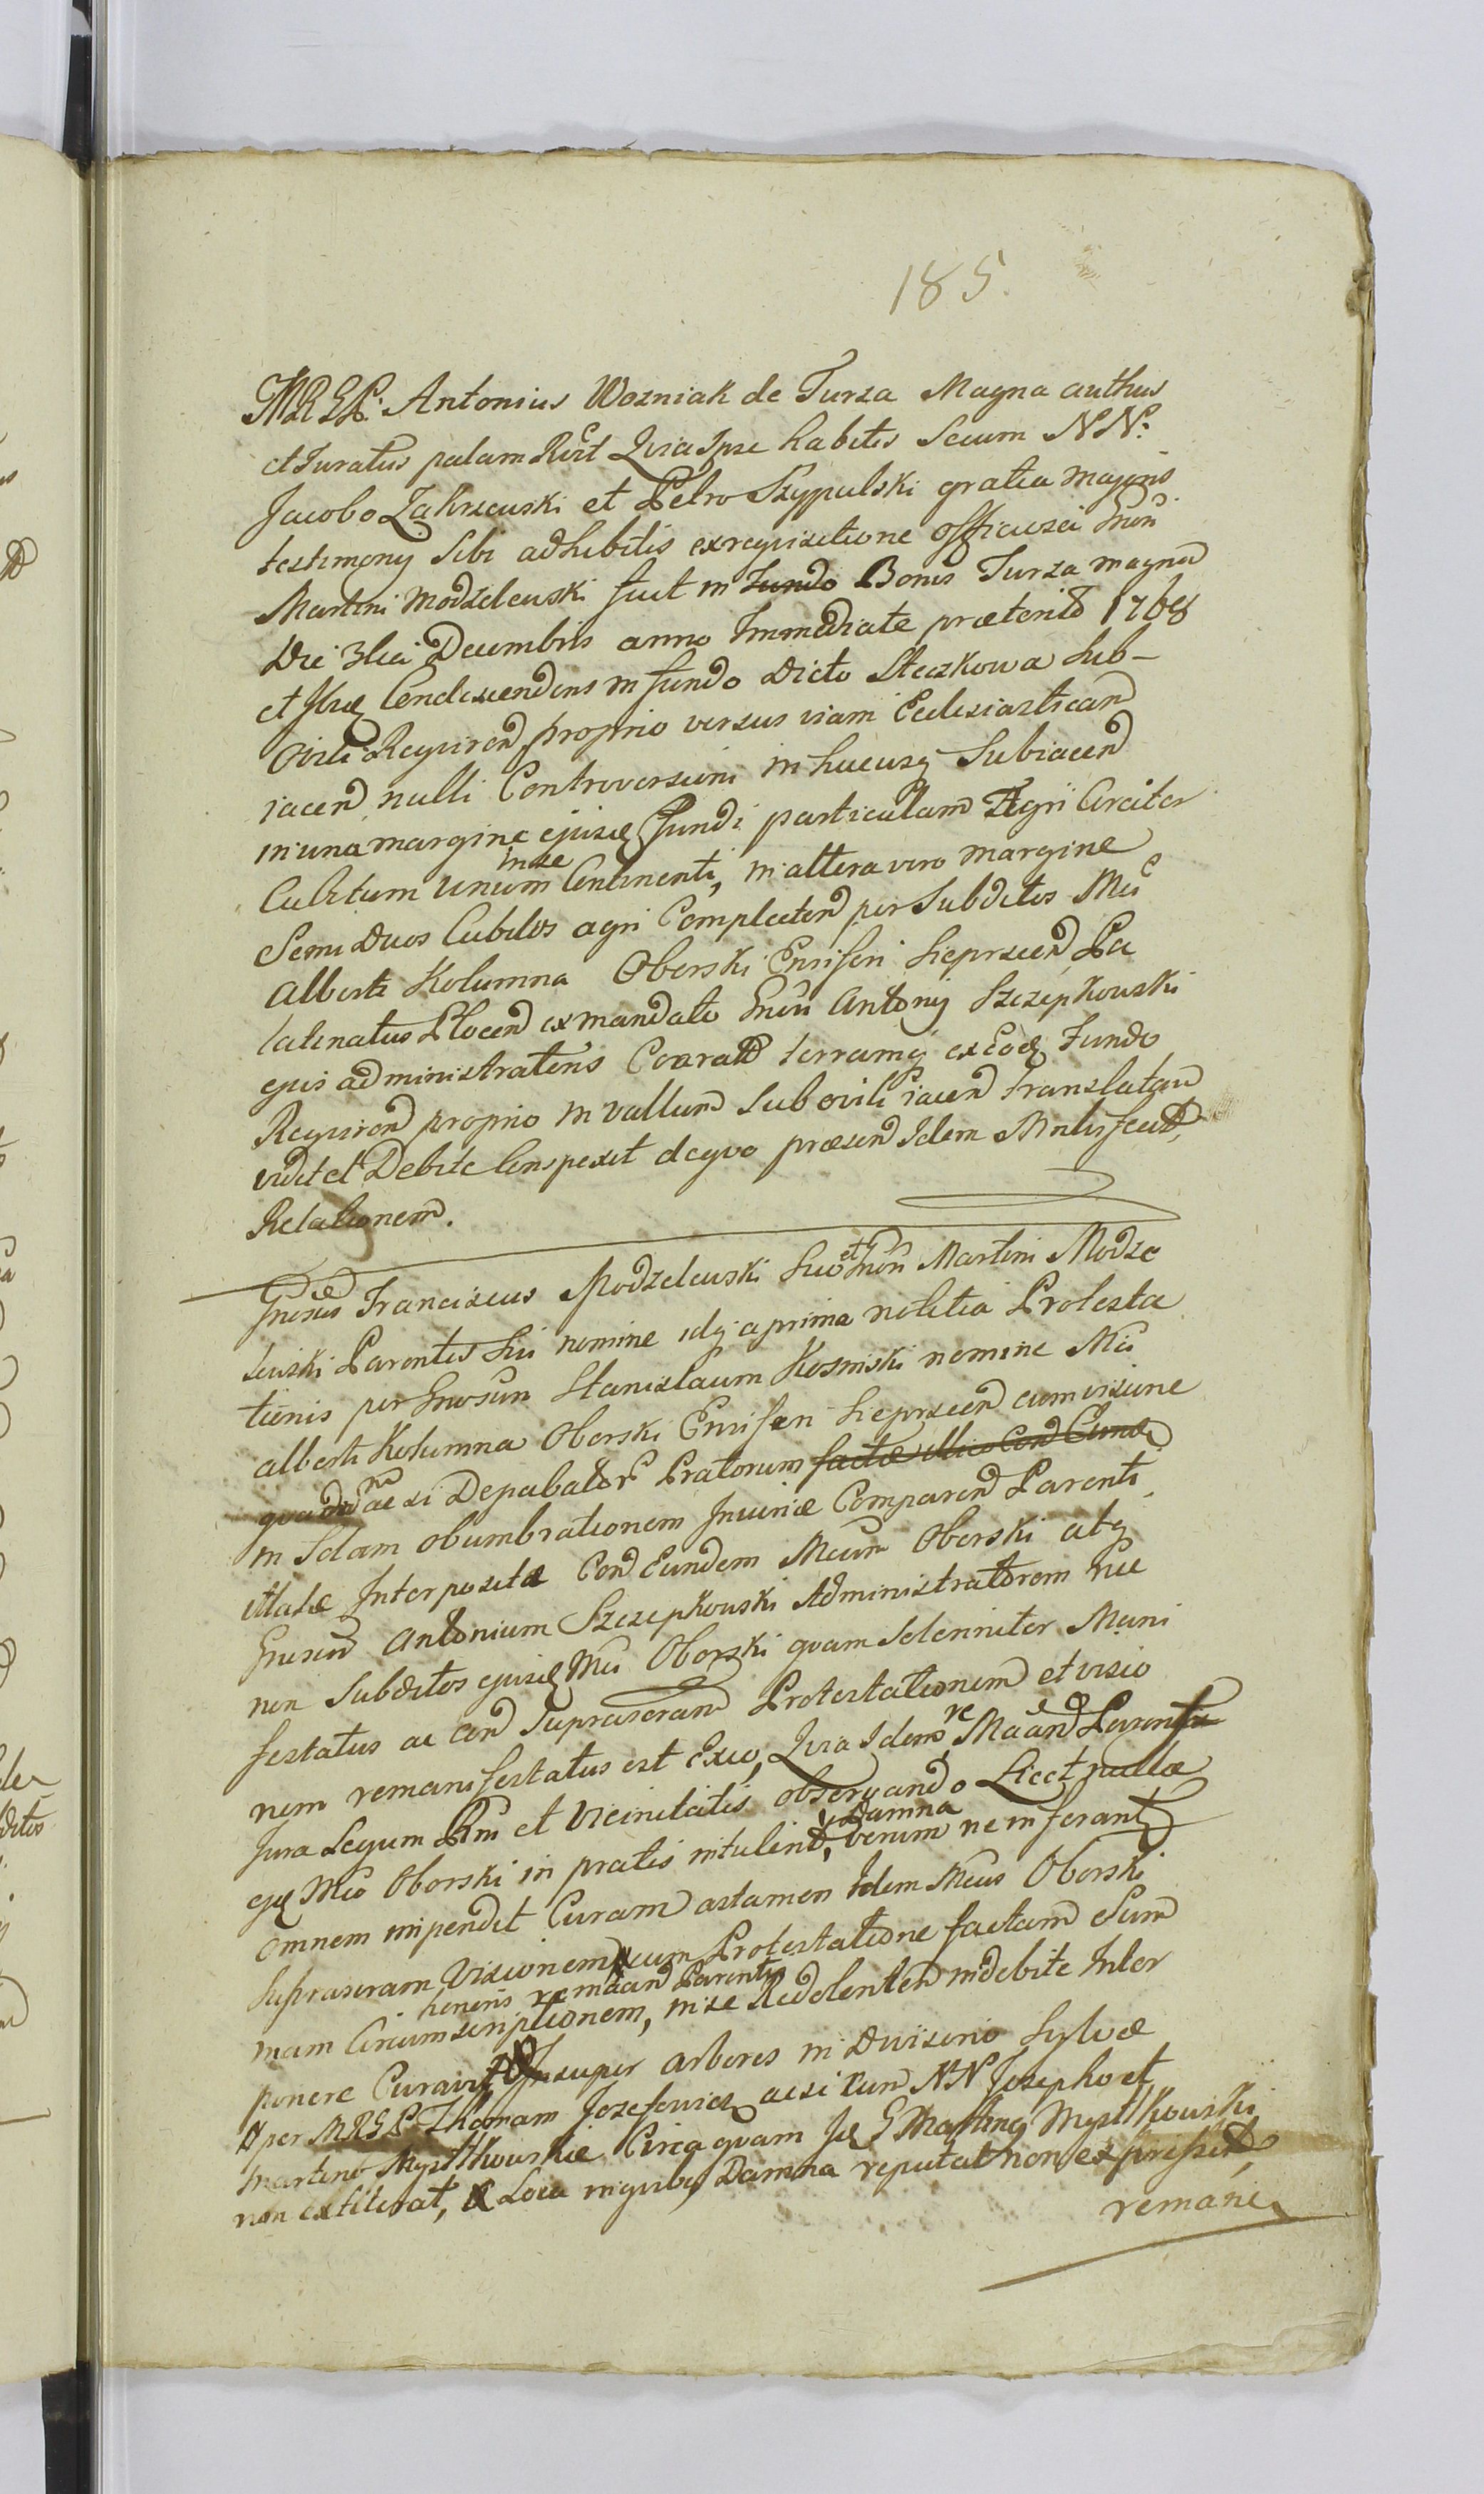 185.
MRGL: Antonius Wozniak de Turza Magna authus
et Juratus palam Rcit Quia Ipse habitis Secum NN:
Jacobo Zakrzewski et Petro Szypulski gratia majoris
testimony Sibi adhibitis ex requisitione officiosa Gnosi
Martini Modzelewski fuit in fundo Bonis Turza magna
Die 3tia Decembris anno Immediate præterito 1768
et Ibiq Condescendens in fundo Dicto Steczkowa Sub-
Ovili Requiren proprio versus viam Ecclesiastican
iacen nulli Controversioni in hucusq Subiacen
in una margine ejusd fundi particulam Agri Circiter
Cubitum unum in se Continenti, in altera vero margine
Semi Duos Cubitos agri Complecten per Subditos Mci
Alberti Kolumna Oborski Ensiferi Sieprscen Pa
latinatus Plocen ex mandato Gnosi Antonij Szczepkowski
ejus administratoris Coarat terramq ex Eod Fundo
Requiren proprio in vallum Sub ovili iacen Translatam
vidit et Debite Conspexit de quo præsen Idem Mnlis fecit
Relationem.
Gnosus Franciscus Modzelewski Suo et Gnosi Martini Modze
lewski Parentis Sui nomine idq a prima notitia Protesta
tionis per Gnosum Stanislaum Kosmiski nomine Mci
alberti Kolumna Oborski Ensiferi Sieprscen cum visione
quadam ac si Depabulator Pratorum factæ illico Con Eund
in Solam obumbrationem Iniuriæ Comparen Parenti
illatæ Interpositæ Con Eundem Mcum Oborski atq
Gnosum Antonium Szczepkowski Administratorem nec
non Subditos ejusd Mci Oborski quam Solenniter Mani
festatus ac con Suprascram Protestationem et visio
nem remanifestatus est Exeo, Quia Idem re Maan Parents
Jura Legum Rni et Vicinitatis observando Licet nulla
ejq Mco Oborski in pratis intulerit, Damna verum ne inferant
omnem impendit Curam attamen Idem Mcus Oborski
Suprascram Visionem cum Protestatione factam Sum
mam Circumscriptionem, honoris remaan Parentis in se Redolentem indebite Inter
ponere Curavit Insuper arbores in Divisorio Sylvæ
per MRGL Thomam Jozefowicz ac si cum NN Josepho et
Martino Mystkowskie Circa quam Id G Martinus Mystkowski
non extiterat, Loca in quibus Damna reputat non expressit,
remane